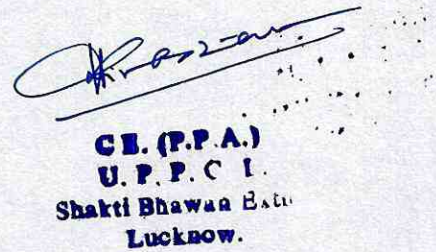 C E. (P.P.A.)
U. P. P. C
Shakti Bhawan
Lucknow.